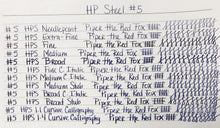 HP Steel #5
#5 HPS Needlepoint Piper the Red Fox
#5 HPS Extra-Fine Piper the Red Fox
#5 HPS Fine Piper the Red Fox
#5 HPS Medium Piper the Red Fox
#5 HPS Broad Piper the Red Fox
#5 HPS Fine C. Italic Piper the Red Fox
#5 HPS Medium C. Italic Piper the Red Fox
#5 HPS Broad C. Italic Piper the Red Fox
#5 HPS Medium Stub Piper the Red Fox
#5 HPS Broad Stub Piper the Red Fox
#5 HPS 1.1 Cursive Calligraphy Piper the Red Fox
#5 HPS 1.4 Cursive Calligraphy Piper the Red Fox